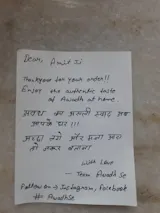 Dear, Amit Ji
Thankyou for your order!!
Enjoy the authentic taste
of Awadh at home.
अवध का असली स्वाद अब
आपके घर !!!
अच्छा लगे और मज़ा आए
तो जरूर बताना
With love
- Team Awadh Se
Follow on Instagram, Facebook
#AwadhSe